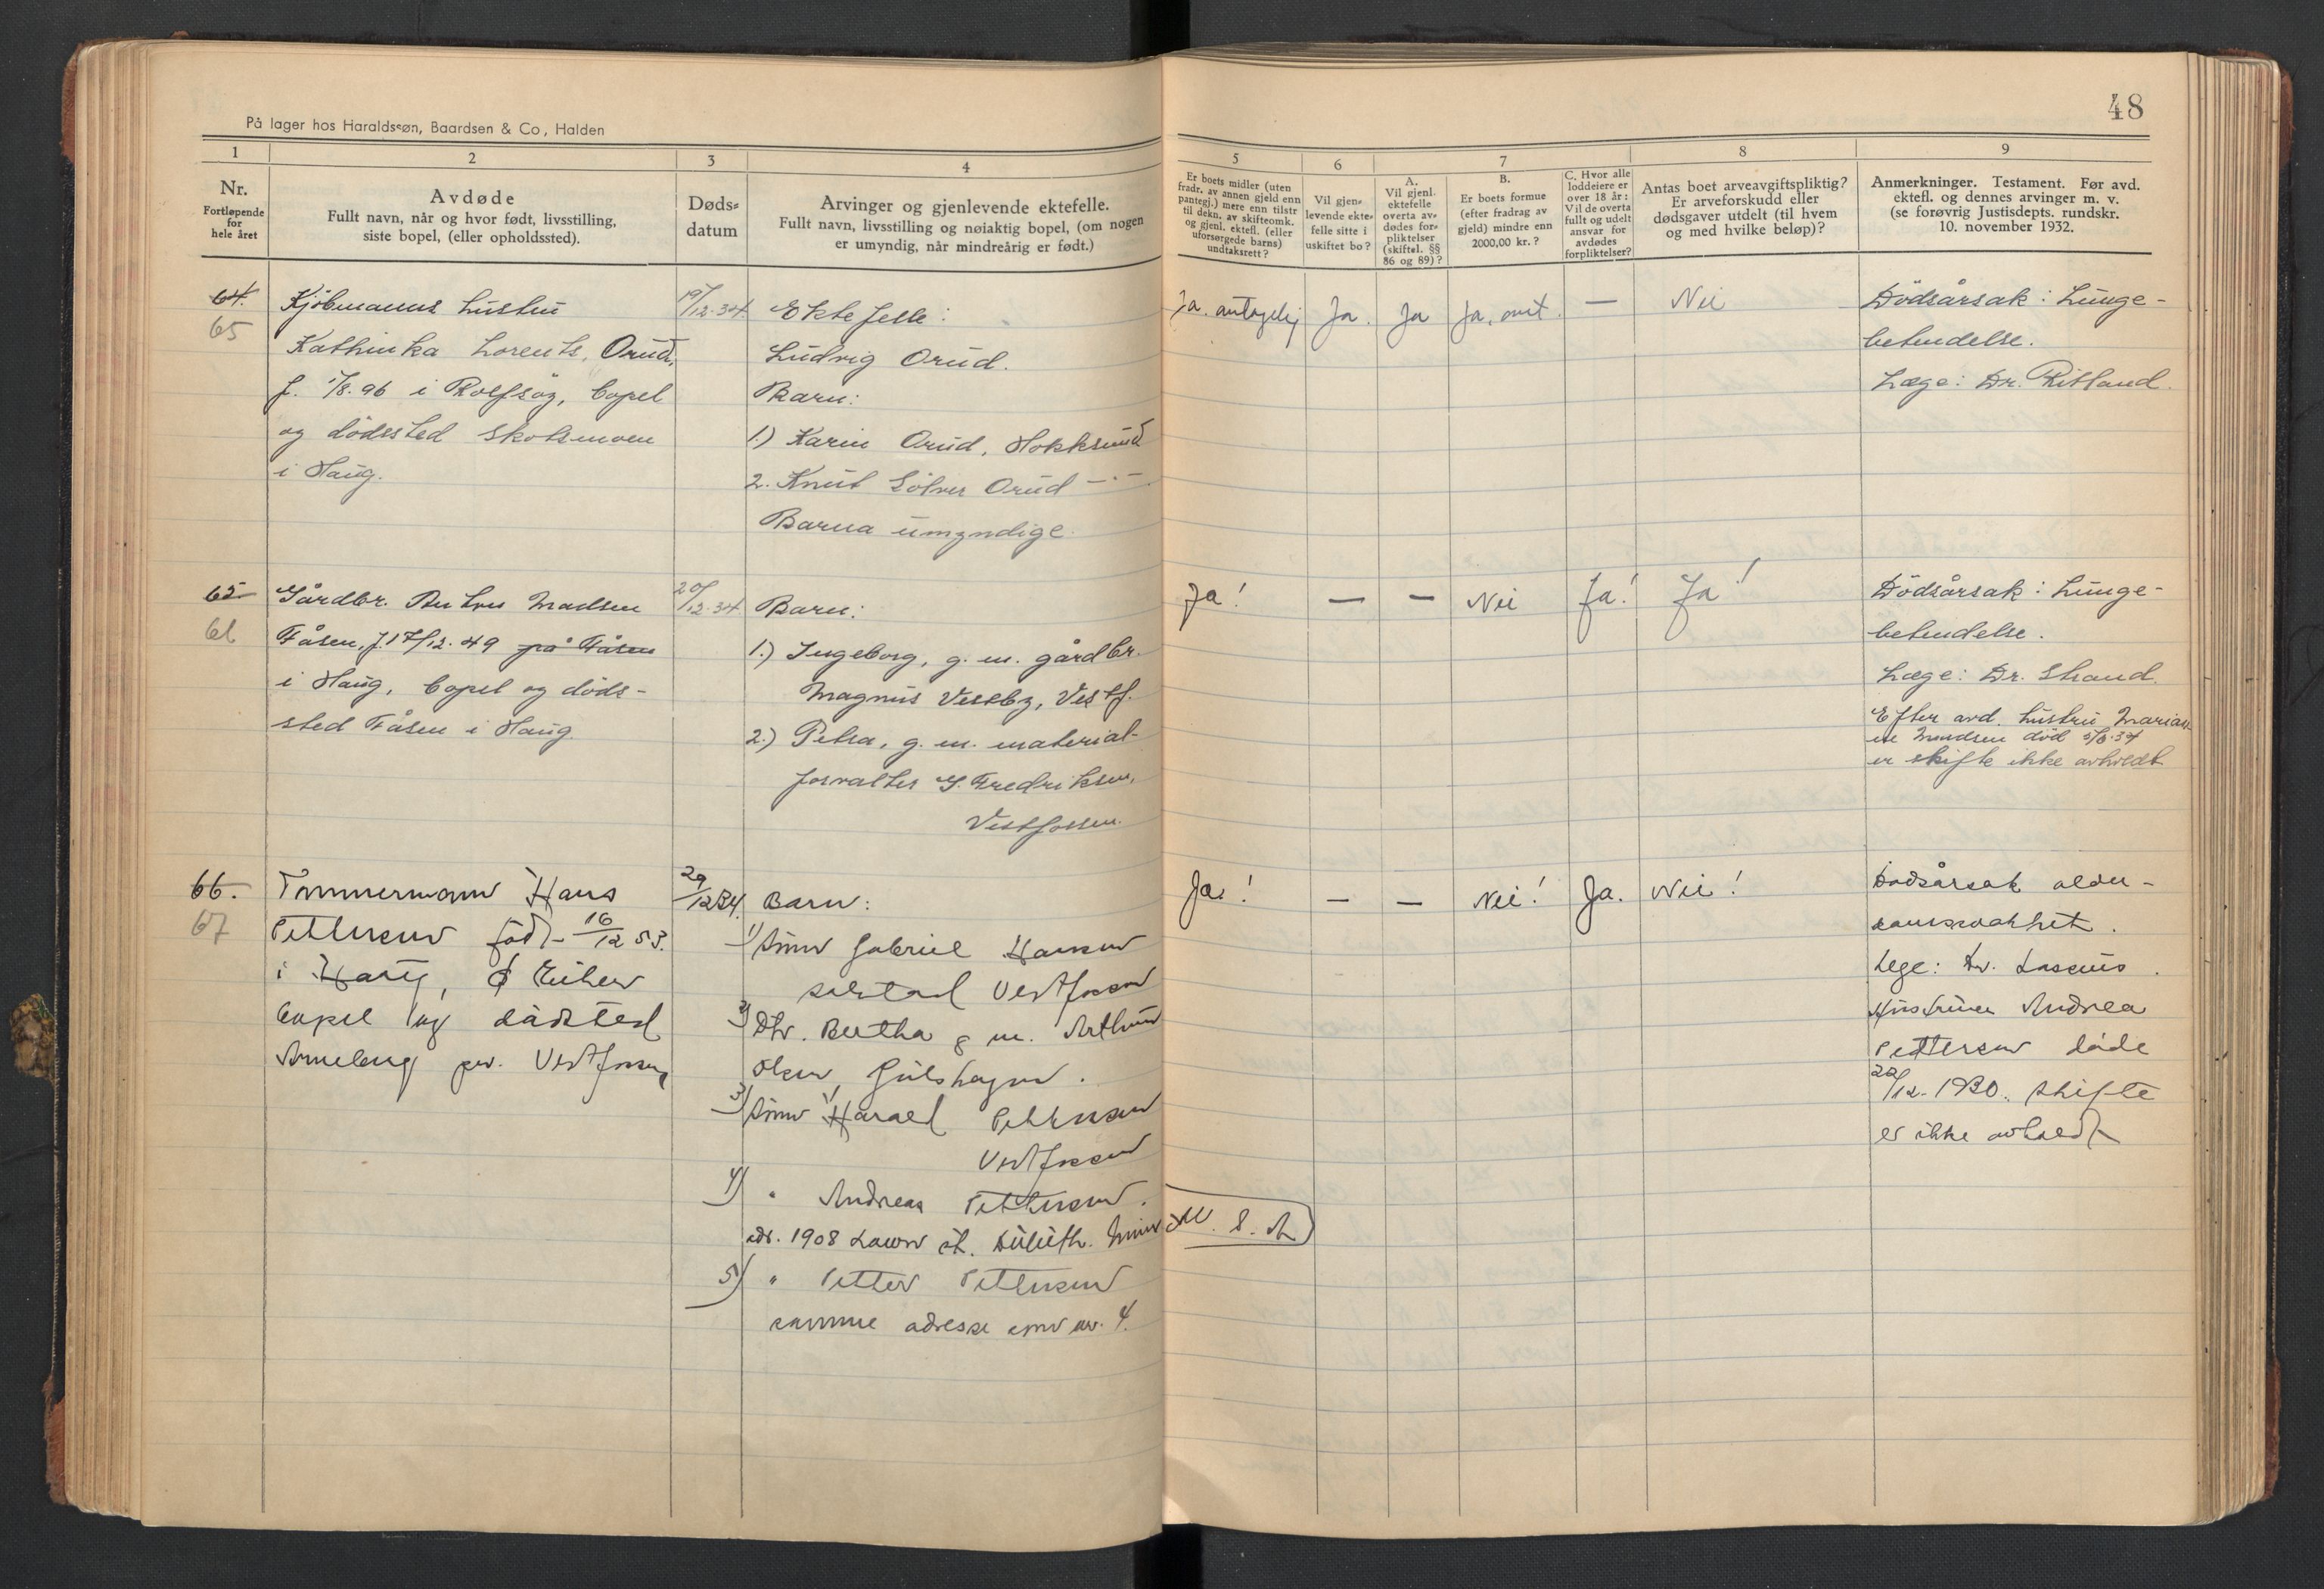 48
På lager hos Haraldssøn, Baardsen & Co, Halden
1
2
3
4
5
6
7
8
9
Nr.
Fortløpende
for
hele året
Avdøde
Fullt navn, når og hvor født, livsstilling,
siste bopel, (eller opholdssted).
Døds-
datum
Arvinger og gjenlevende ektefelle.
Fullt navn, livsstilling og nøiaktig bopel, (om nogen
er umyndig, når mindreårig er født.)
Er boets midler (uten
fradr. av annen gjeld enn
pantegj.) mere enn tilstr
til dekn. av skifteomk.
og gjenl. ektefl. (eller
uforsørgede barns)
undtaksrett?
Vil gjen-
levende ekte-
felle sitte i
uskiftet bo?
A.
Vil gjenl.
ektefelle
overta av-
dødes for-
pliktelser
(skiftel. §§
86 og 89)?
B.
Er boets formue
(efter fradrag av
gjeld) mindre enn
2000,00 kr.?
C. Hvor alle
loddeiere er
over 18 år:
Vil de overta
fullt og udelt
ansvar for
avdødes
forpliktelser?
Antas boet arveavgiftspliktig?
Er arveforskudd eller
dødsgaver utdelt (til hvem
og med hvilke beløp)?
Anmerkninger. Testament. Før avd.
ektefl. og dennes arvinger m. v.
(se forøvrig Justisdepts. rundskr.
10. november 1932.
64.
65
Kjöbmanns hustru
Kathinka Lorents. Orud,
f. 1/8. 96 i Rolfsøy, bopel
og dödssted Skotsmoen
i Haug.
19/12.34
Ektefelle:
Ludvig Orud.
Barn:
1.) Karin Orud, Hokksund
2. Knut Sölver Orud — " —
Barna umyndige.
Ja. antagelig
Ja.
Ja
Ja, ant.
—
Nei
Dödsårsak: Lunge-
betendelse.
Læge: Dr. Ritland.
65
66
Gårdbr. Anton Madsen
Fåsen, f. 17/12. 49 på Fåsen
i Haug, bopel og döds-
sted Fåsen i Haug
20/12.34
Barn:
1.) Ingeborg, g. m. gårdbr.
Magnus Vestby, Vestf.
2.) Petra, g. m. material-
forvalter G. Fredriksen,
Vestfossen.
Ja!
—
—
Nei
Ja!
Ja!
Dödsårsak: Lunge-
betendelse.
Læge: Dr. Strand.
Efter avd. hustru Marian
ne Madsen död 5/6.34
er skifte ikke avholdt.
66.
67
Tømmermann Hans
Pettersen född 16/12 53.
i Haug, Ø Eiker
bopel og dödsted
Anneberg pr. Vestfossen
29/12 34.
Barn:
1) Sönn Gabriel Hansen
Solstad Vestfossen
2) Dtr. Bertha g m. Arthur
Olsen, Gulskogen.
3) Sönn Harald Pettersen
Vestfossen
4) " Andreas Pettersen.
adr. 1908 Lawn st. Duluth. Minn. U. S. A
5) " Petter Pettersen
samme adresse som nr. 4.
Ja!
—
—
Nei!
Ja.
Nei!
Dødsårsak alder-
domssvakhet.
Lege: Dr. Lassens.
Hustruen Andrea
Pettersen døde
22/12-1930. Skifte
er ikke avholdt